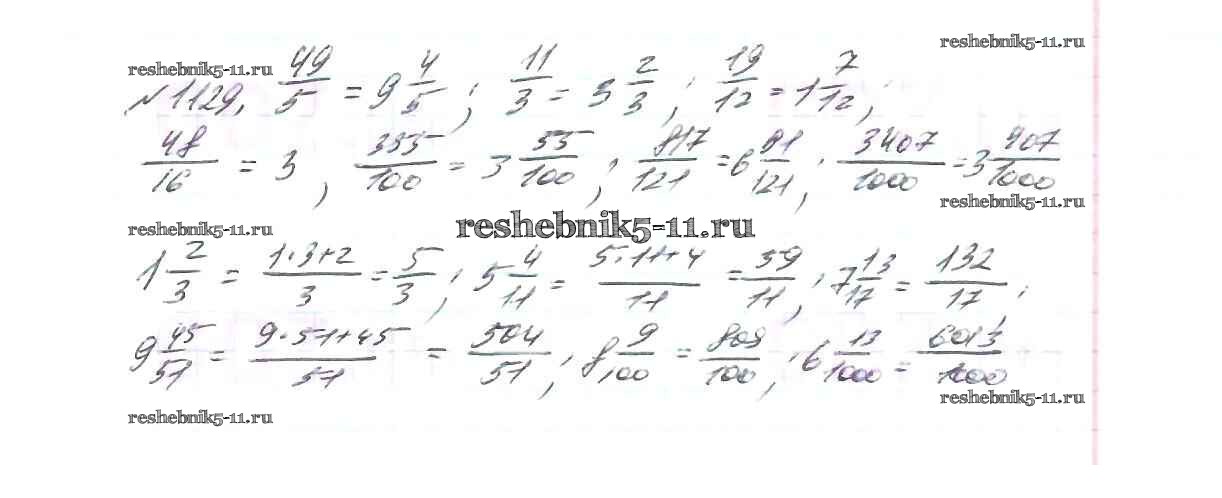 reshebnik5-11.ru
reshebnik5-11.ru
№1129. 49/5 = 9 4/5; 11/3 = 3 2/3; 19/12 = 1 7/12;
48/16 = 3, 355/100 = 3 55/100; 817/121 = 6 91/121; 3407/1000 = 3 407/1000
reshebnik5-11.ru
reshebnik5-11.ru
reshebnik5-11.ru
1 2/3 = 1·3+2/3 = 5/3; 5 4/11 = 5·11+4/11 = 59/11; 7 13/17 = 132/17;
9 45/51 = 9·51+45/51 = 504/51; 8 9/100 = 809/100; 6 13/1000 = 6013/1000
reshebnik5-11.ru
reshebnik5-11.ru